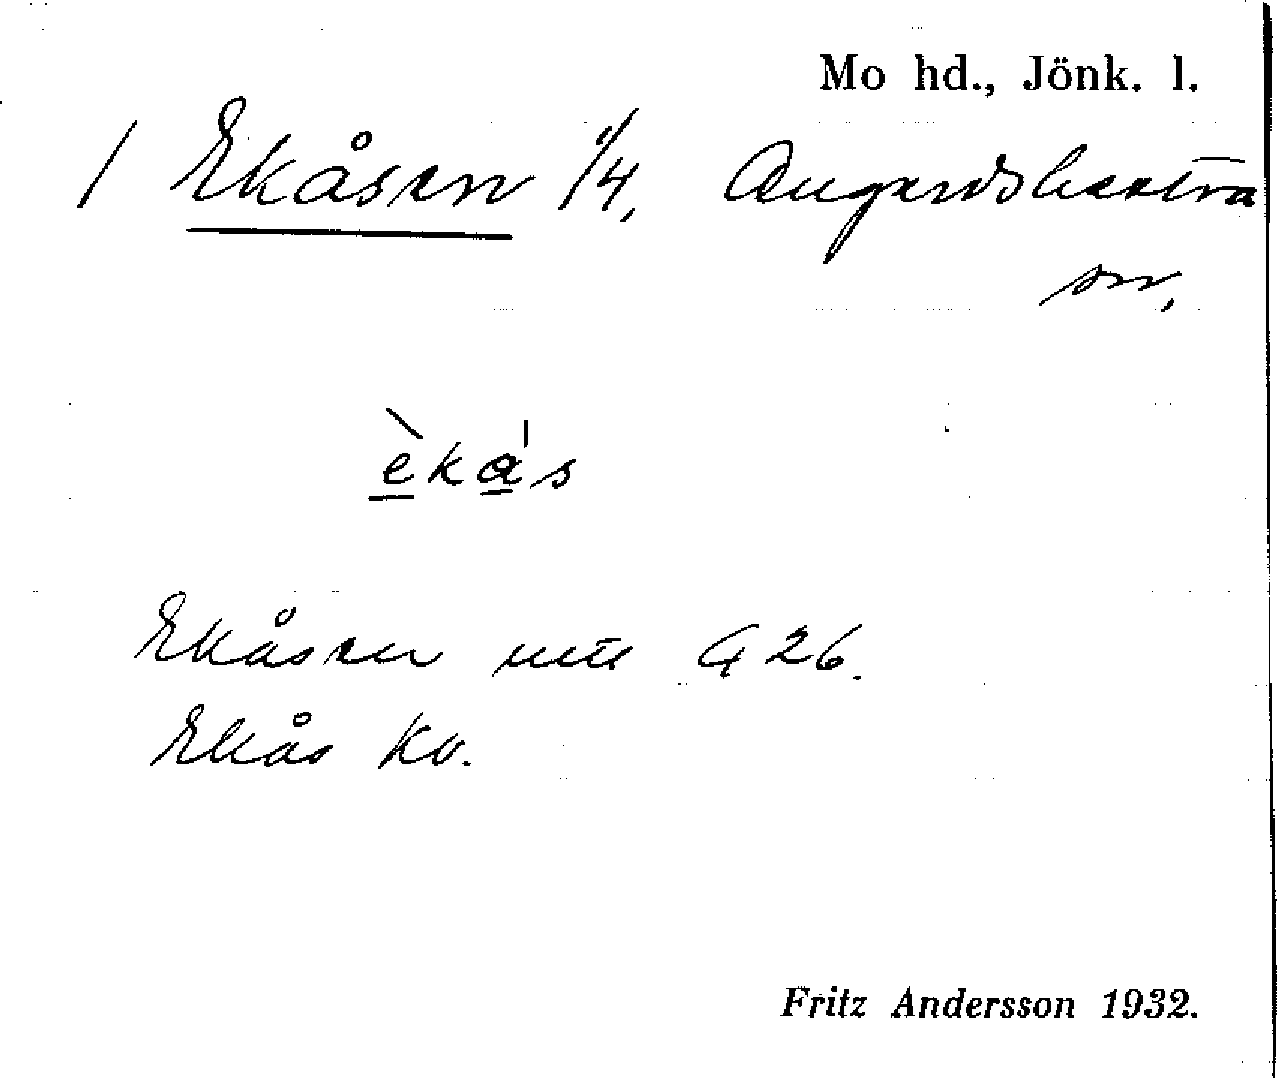 Mo hd., Jönk. l.
/ Ekåsen 1/4, Angerdshestra
sn,
èkás
Ekåsen G 26.
Ekås Kv.
Fritz Andersson 1932.